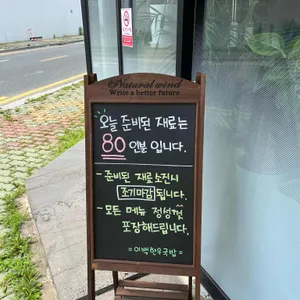 Natural wind
Write a better future
오늘 준비된 재료는
80 인분 입니다.
- 준비된 재료 소진시
조기마감 됩니다.
- 모든 메뉴 정성껏
포장해드립니다.
= 이백한우국밥 =